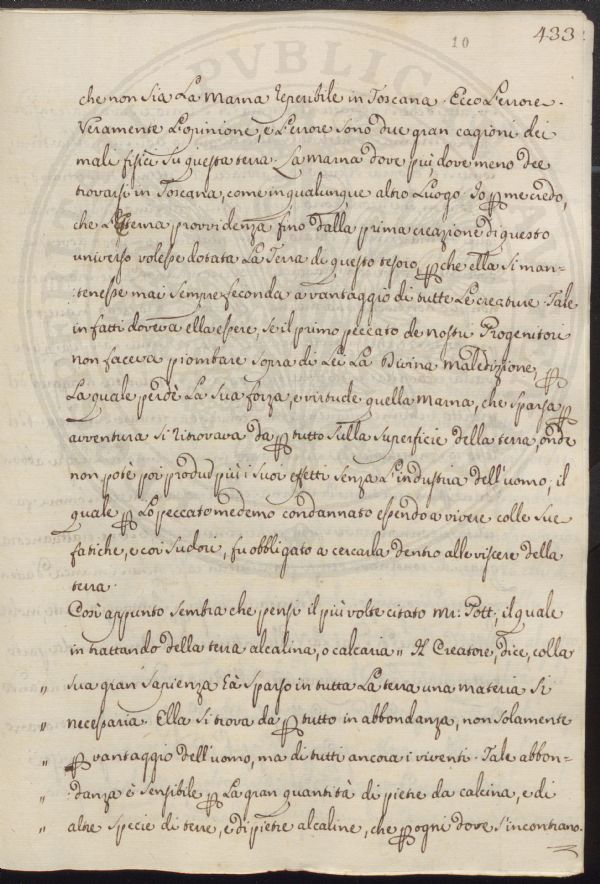 433
10
che non sia La Marna reperibile in Toscana. Ecco L'errore.
Veramente L'opinione, e L'errore sono due gran cagioni dei
mali fisici su questa terra. La Marna dove più, dove meno dee
trovarsi in Toscana, come in qualunque altro Luogo. Io per me credo,
che L'Eterna providenza fino dalla prima creazione di questo
universo volesse dotata La Terra di questo tesoro, perche ella si man-
:tenesse mai sempre feconda a vantaggio di tutte Le creature. Tale
in fatti doveva ella essere, se il primo peccato de nostri Progenitori
non faceva piombare sopra di Lei La Divina Maledizione, per
La quale perdè La sua forza, e virtude quella Marna, che sparsa per
avventura si ritrovava da per tutto sulla superficie della terra, onde
non potè poi produr più i suoi effetti senza L'industria dell'uomo, il
quale per Lo peccato medemo condannato essendo a vivere colle sue
fatiche, e coi sudori, fu obbligato a cercarla dentro alle viscere della
terra.
Così appunto sembra che pensi il più volte citato Mr: Pott, il quale
in trattando della terra alcalina, o calcaria " Il Creatore, dice, colla
" sua gran sapienza hà sparso in tutta La terra una materia si
" necessaria. Ella si trova da per tutto in abbondanza, non solamente
" per vantaggio dell'uomo, ma di tutti ancora i viventi. Tale abbon-
" :danza è sensibile per La gran quantità di pietre da calcina, e di
" altre specie di terre, e di pietre alcaline, che per ogni dove s'incontrano.
PVBLIC